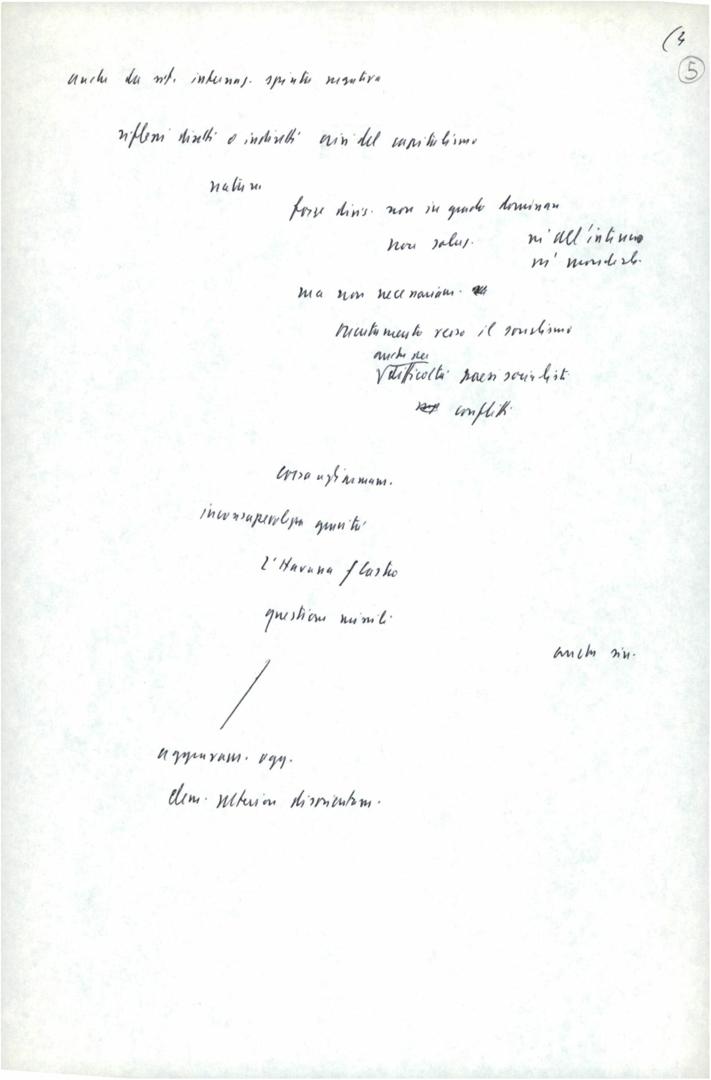 (4
5
anche da sit. internaz. spinta negativa
riflessi diretti o indiretti crisi del capitalismo
natura
forze divis. non in grado dominare
non soluz. né all'interno
né mondiale
ma non necessariam.
orientamento verso il socialismo
anche per
difficoltà paesi socialisti
conflitti
corsa agli armam.
inconsapevolezza gravità
L'Havana F Castro
questione missili
anche sin.
aggravam. ogg.
elem. ulteriore disorientam.